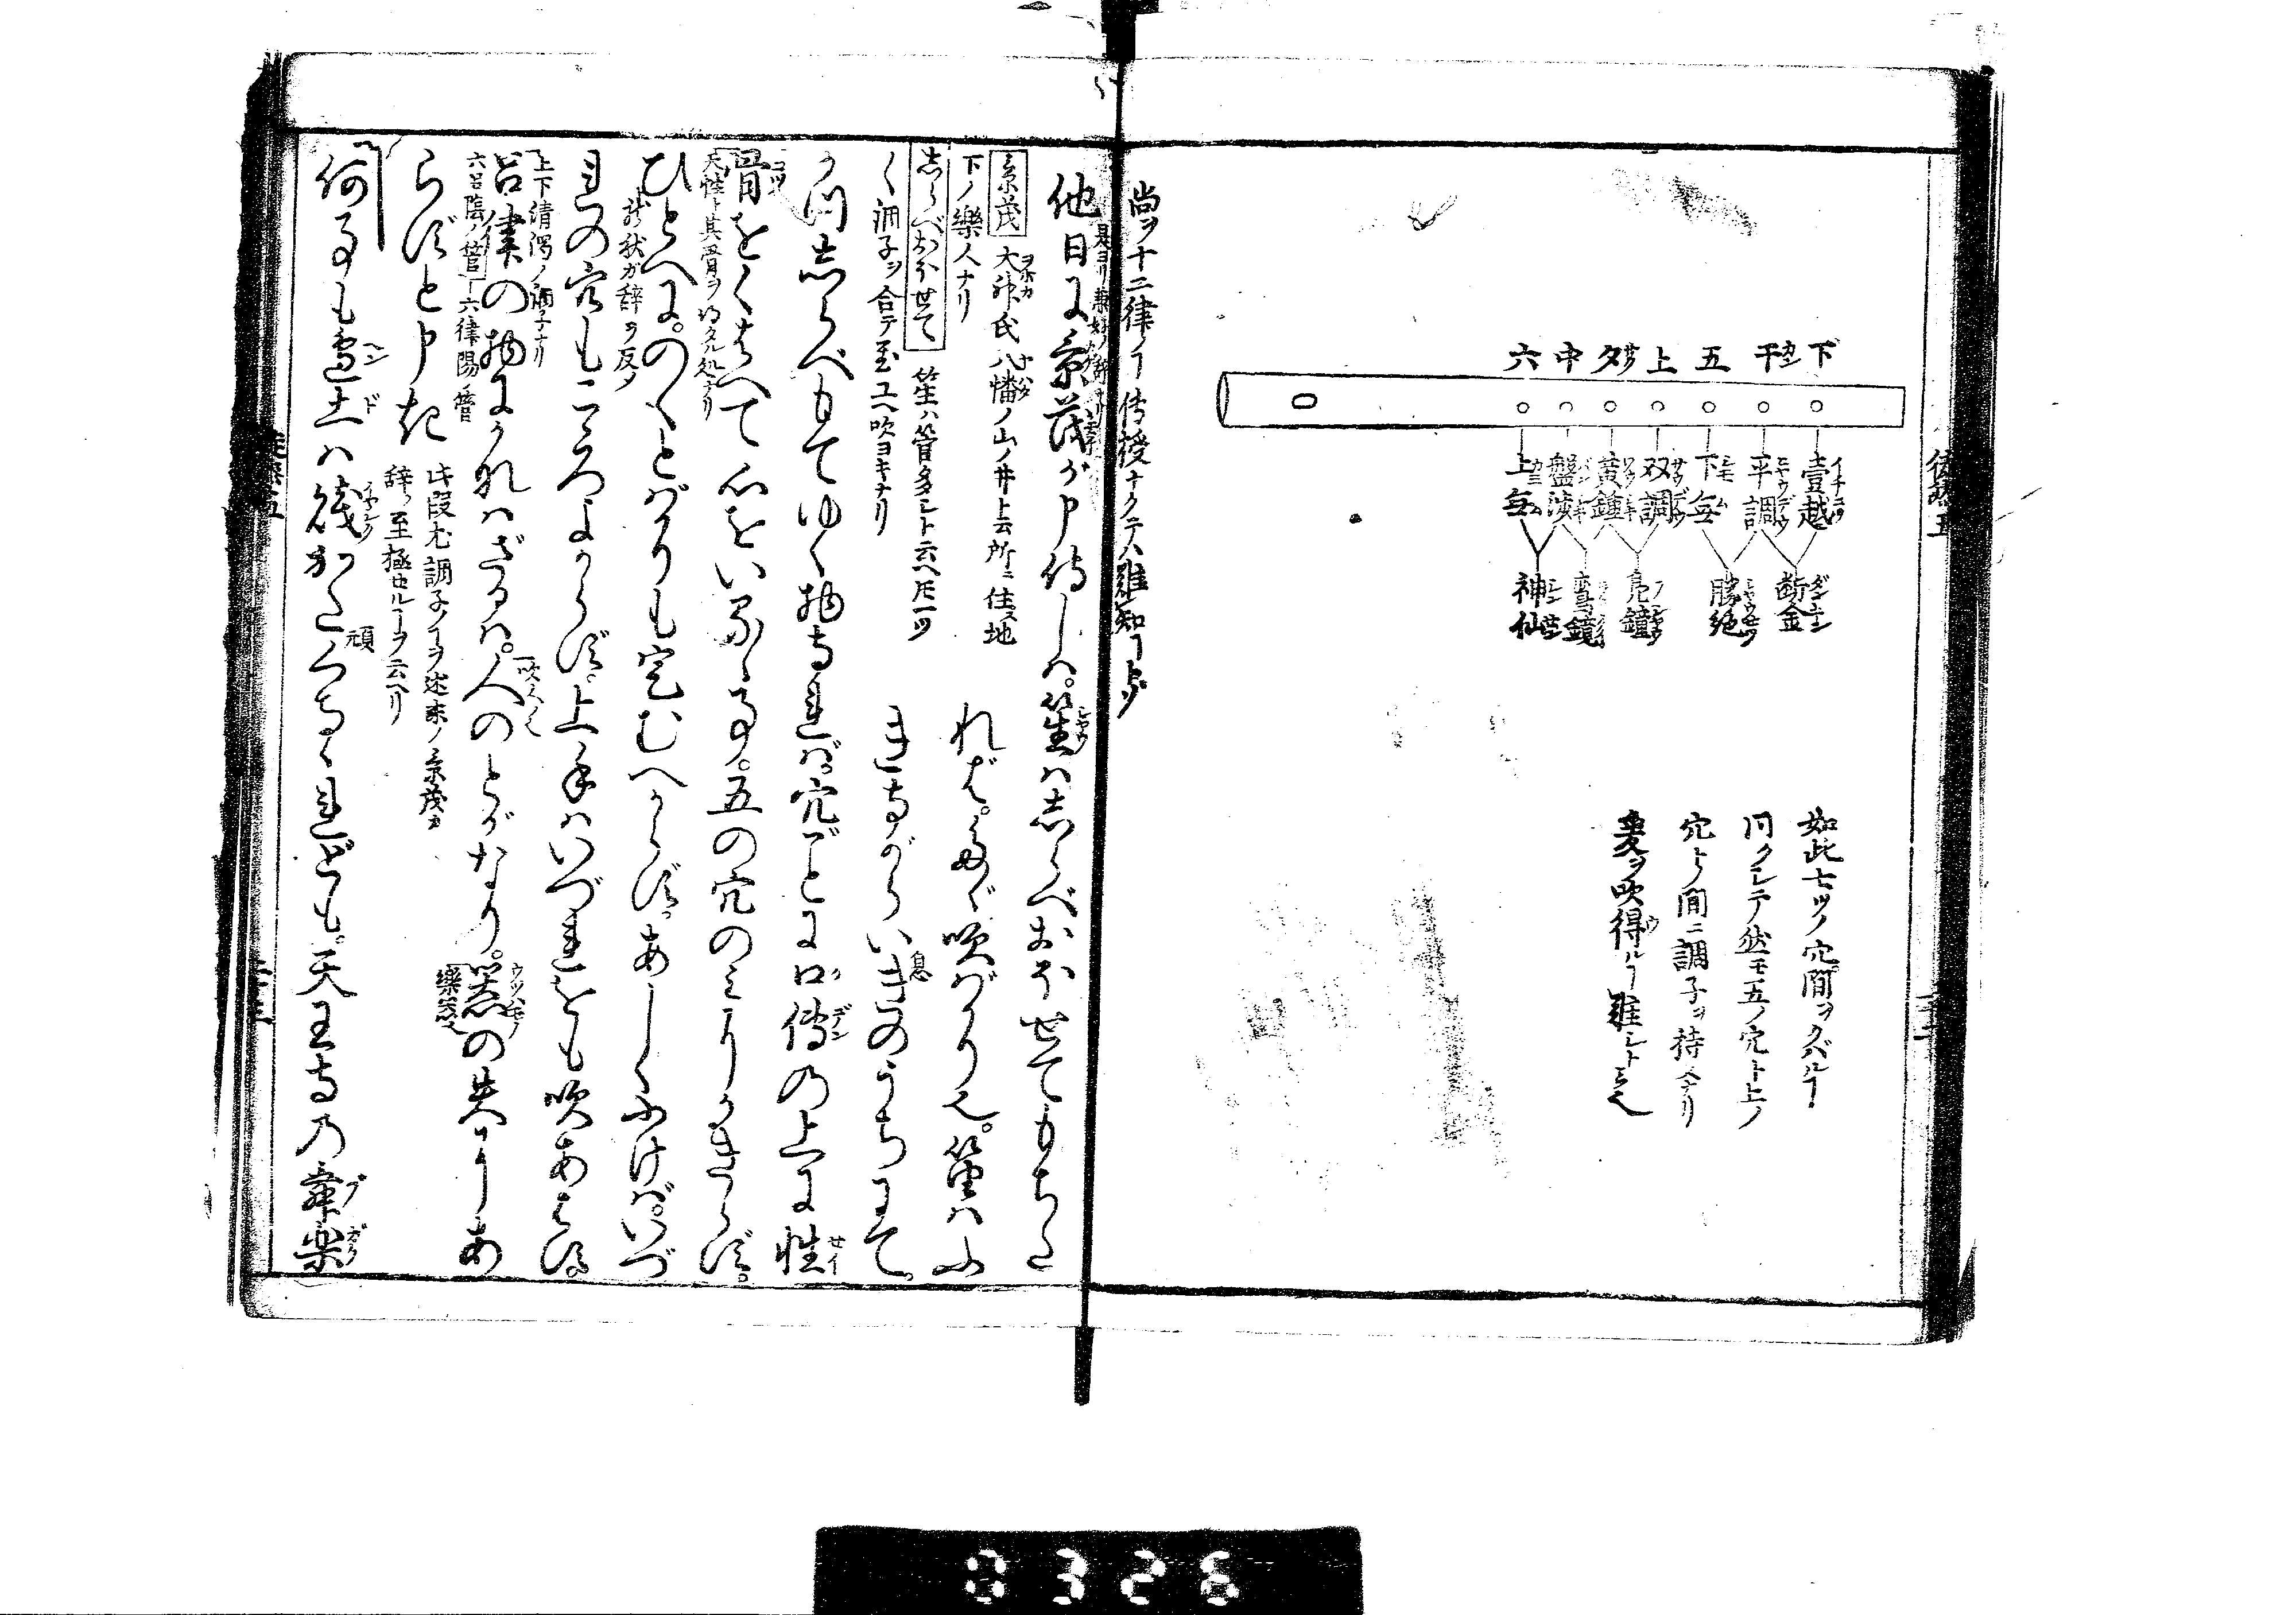 下 干カン 五 上 タサク 中 六
壹越イチコツ
平調
下無
双調
黄鐘
盤渉
上無
断金
勝絶
鳬鐘
鸞鏡
神仙
如此七ツノ穴間ヲクバルヿ
同クシテ然モ五ノ穴ト上ノ
穴トノ間ニ調子ヲ持
爰ヲ吹得ルヿ難シト云
尚ヲ十二律ノヿ傳授ナクテハ難知ヿトゾ
他日に景茂が申侍しは。笙はしらべおほせてもちた
景茂 大神氏八幡ノ山ノ井ト云所ニ住ス地
下ノ樂人ナリ
れば。たゞ吹ばかり也。笛はふ
しらべおほせて 笙ハ管多シト云ヘ𪜈一ツ
〱調子ヲ合テ置ユヘ吹ヨキナリ
きながらいき息のうちにて。
かつしらべもてゆく物なれば。穴ごとに口傳の上に性
骨をくはへて心をいるゝ事。五の穴のみにかぎらず。
天性ト其骨ヲ得タル処ナリ
ひとへに。のくとばかりも定むべからず。あしくふけば。いづ
龍秋ガ辞ヲ反ク
れの穴もこゝろよからず。上手はいづれをも吹あはす。
上下清濁ノ調子ナリ
呂律の物にかなはざるは。人のとがなり。器の失にあ
六呂陰ノ管 六律陽ノ管
樂器也
らずと申き
此段尤調子ノヿヲ述
景茂ガ
辞ヲ至極セルヿヲ云ヘリ
何事も邊土ヘンドは賤かたくなゝれども。天王寺の舞楽ブガク